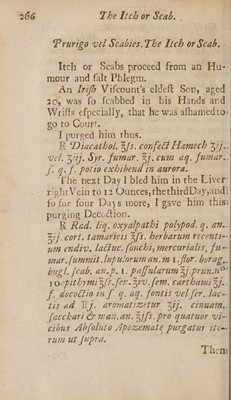 266 The Itch or Scab.
Prurigo vel Scabies. The Itch or Scab.
Itch or Scabs proceed from an Hu-
mour and salt Phlegm.
An Irish Viscount's eldest Son, aged
20, was so scabbed in his Hands and
Wrists especially, that he was ashamed to
go to Court.
I purged him thus.
℞ Diacathol. ℥ss. confect Hamech ʒij.
vel. ʒiij. Syr. fumar. ℥j. cum aq. fumar.
s. q. f. potio exhibend in aurora.
The next Day I bled him in the Liver
right Vein to 12 Ounces, the third Day, and
so for four Days more, I gave him this
purging Decoction.
℞ Rad. liq. oxyalpathi polypod. q. an.
℥ij. cort. tamaricis ℥ss. herbarum recenti-
um endiv. lactuc. sonchi, mercurialis, fu-
mar. summit. lupulorum an. m 1. flor. borag.
bugl. scab. an. p. 1. passularum ℥j. prun. n°
10. epithymi ℥ss. sev. ℥iv. sem. carthami ℥j.
f. decoctio in s. q. aq. fontis vel ser. lac-
tis ad ℔j. aromatizetur ʒij. cinnam.
sacchari & man. an. ℥jss. pro quatuor vi-
cibus Absoluto Apozemate purgatur ite-
rum ut supra.
Them